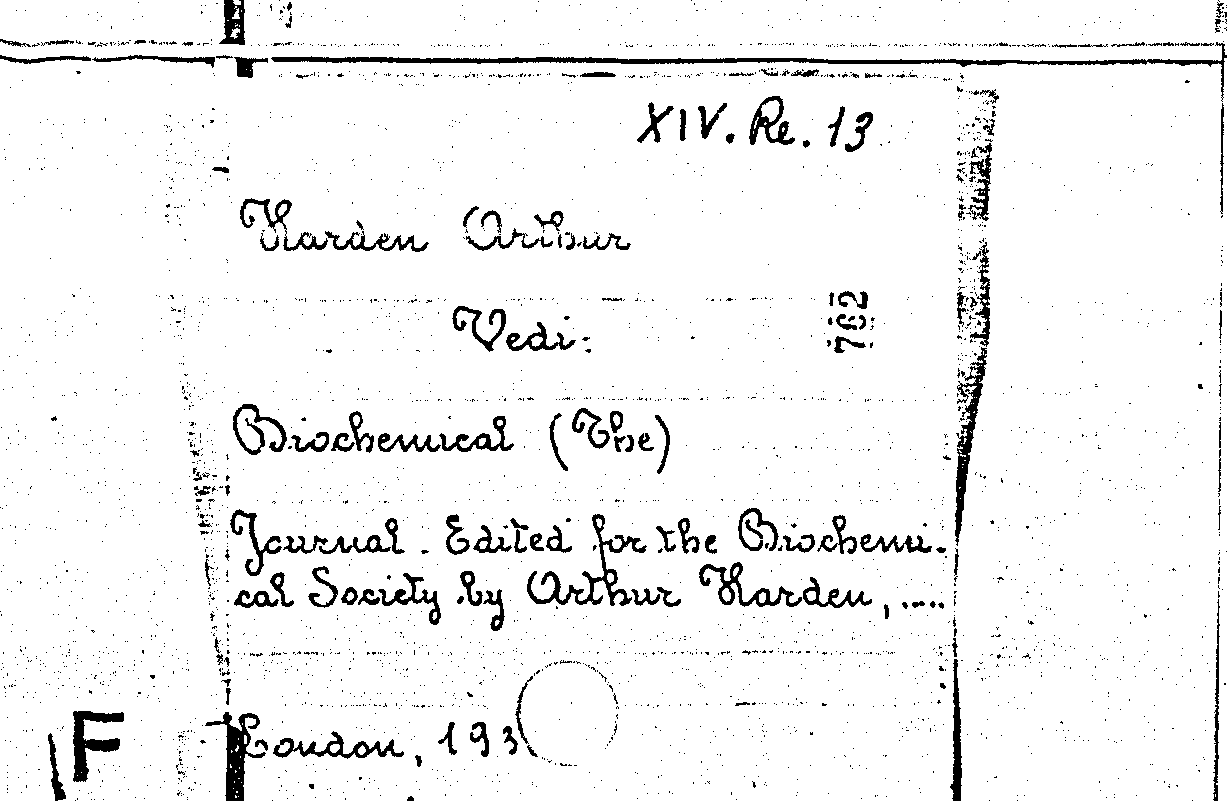 XIV. Re. 13
Harden Arthur
Vedi:
762
Biochemical (The)
Journal. Edited for the Biochemi-
cal Society by Arthur Harden, .....
London, 193
F